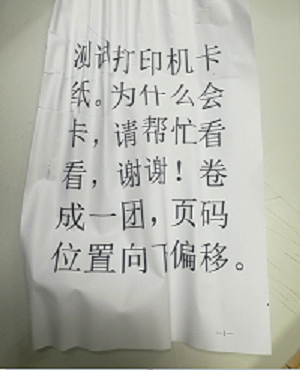 测试打印机卡
纸。为什么会
卡，请帮忙看
看，谢谢！卷
成一团，页码
位置向下偏移。
—1—